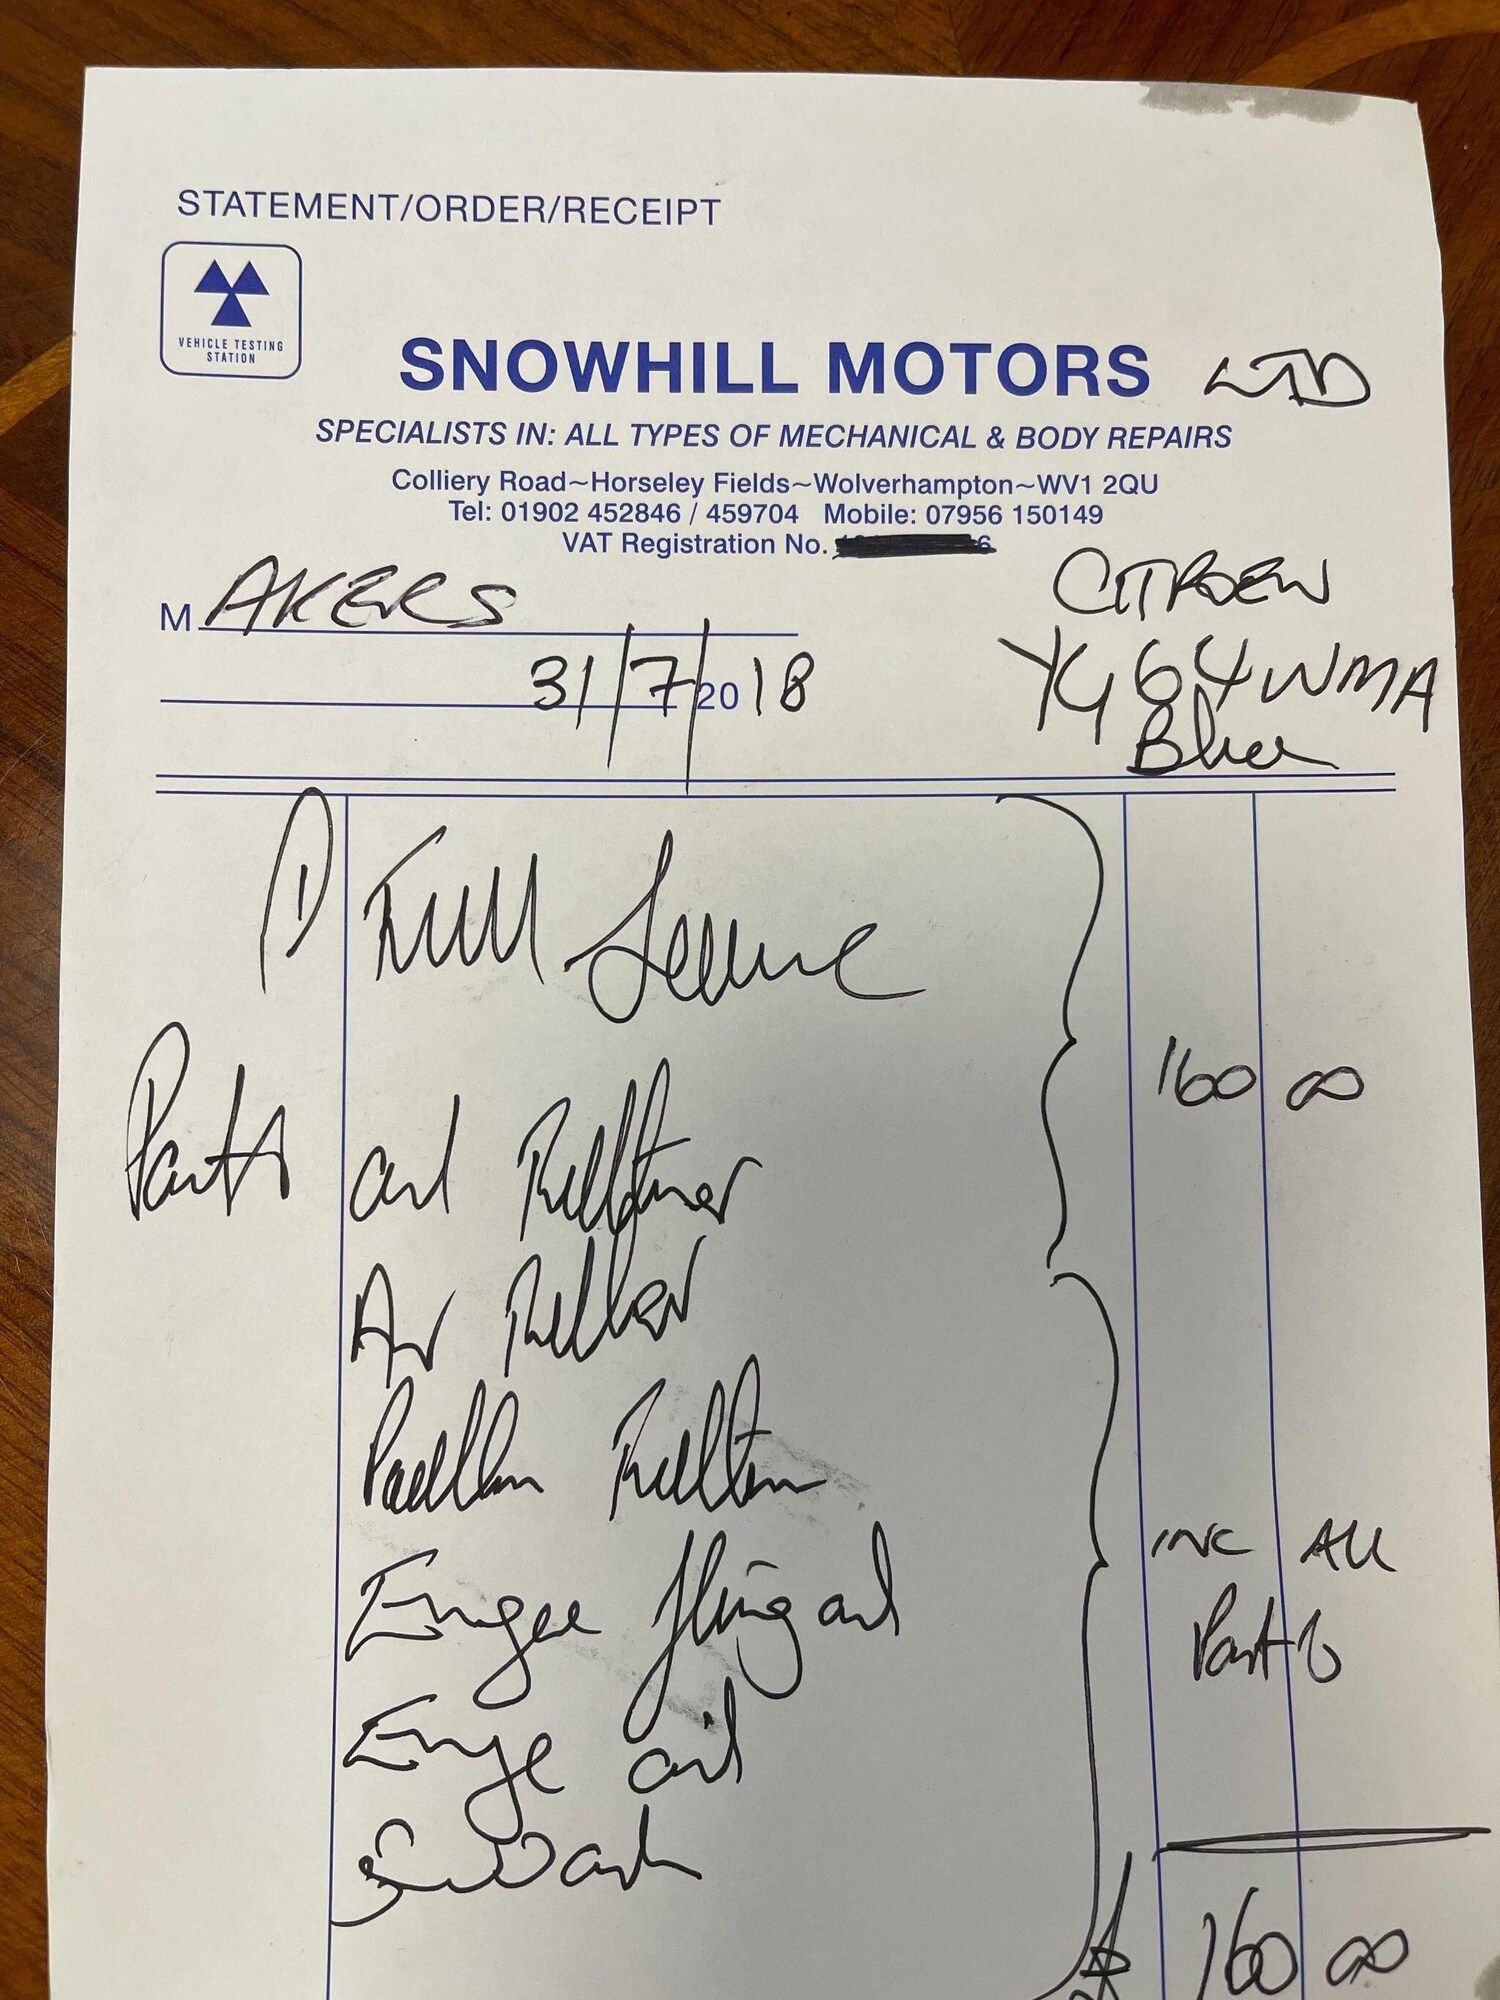 STATEMENT/ORDER/RECEIPT
VEHICLE TESTING
STATION
SNOWHILL MOTORS LTD
SPECIALISTS IN: ALL TYPES OF MECHANICAL & BODY REPAIRS
Colliery Road~Horseley Fields~Wolverhampton~WV1 2QU
Tel: 01902 452846 / 459704 Mobile: 07956 150149
VAT Registration No. 6
M AKERS
CITROEN
31/7/2018
YG64WMA
Blue
1) Full Service
160 00
Parts
Air
Pollen
INC ALL
Parts
Engine oil
£ 160 00